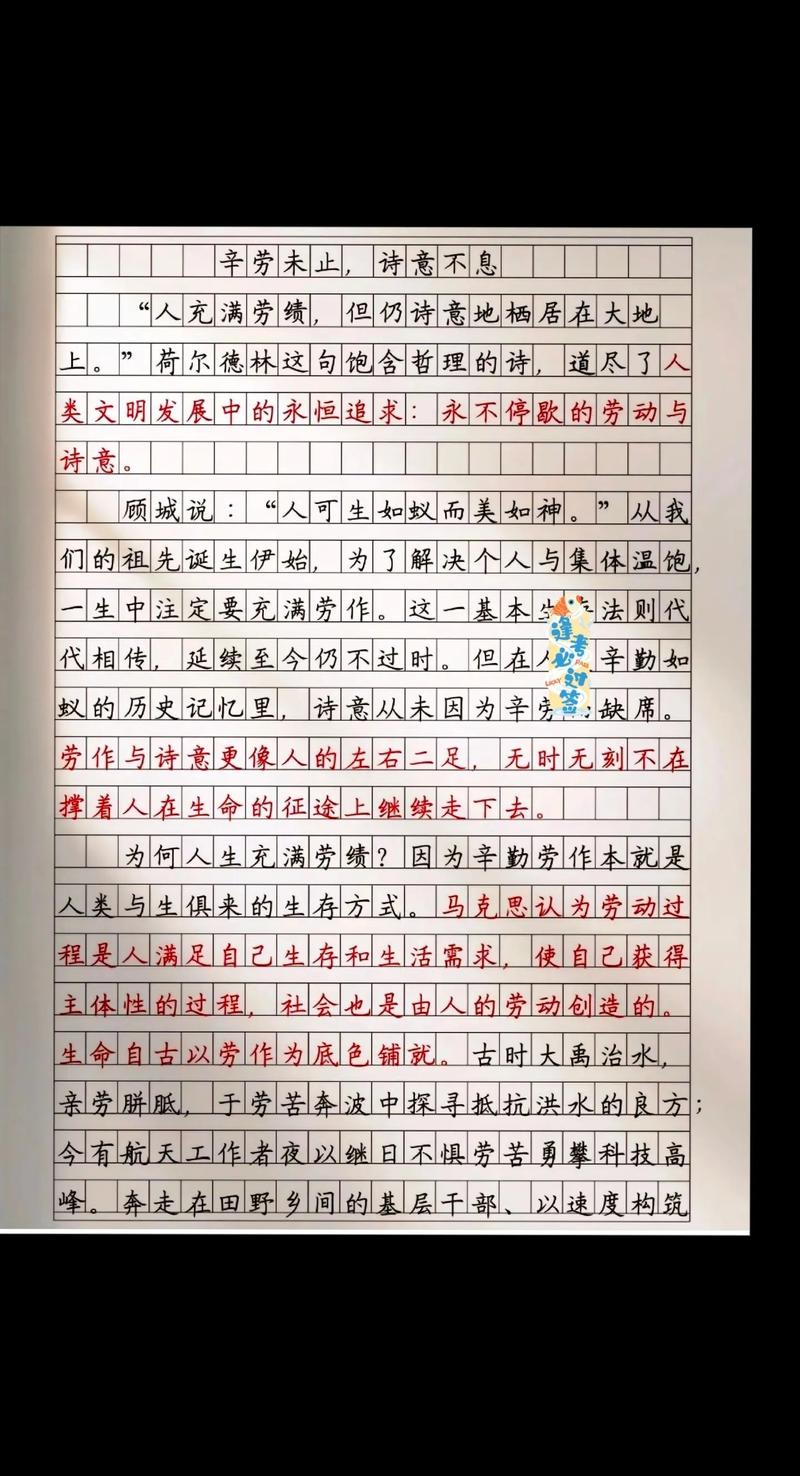 辛劳未止，诗意不息
“人充满劳绩，但仍诗意地栖居在大地
上。”荷尔德林这句饱含哲理的诗，道尽了人
类文明发展中的永恒追求：永不停歇的劳动与
诗意。
顾城说：“人可生如蚁而美如神。”从我
们的祖先诞生伊始，为了解决个人与集体温饱，
一生中注定要充满劳作。这一基本生法则代
代相传，延续至今仍不过时。但在人辛勤如
蚁的历史记忆里，诗意从未因为辛劳缺席。
逢考必过签
LUCKY
PASS
劳作与诗意更像人的左右二足，无时无刻不在
撑着人在生命的征途上继续走下去。
为何人生充满劳绩？因为辛勤劳作本就是
人类与生俱来的生存方式。马克思认为劳动过
程是人满足自己生存和生活需求，使自己获得
主体性的过程，社会也是由人的劳动创造的。
生命自古以劳作为底色铺就。古时大禹治水，
亲劳胼胝，于劳苦奔波中探寻抵抗洪水的良方；
今有航天工作者夜以继日不惧劳苦勇攀科技高
峰。奔走在田野乡间的基层干部、以速度构筑